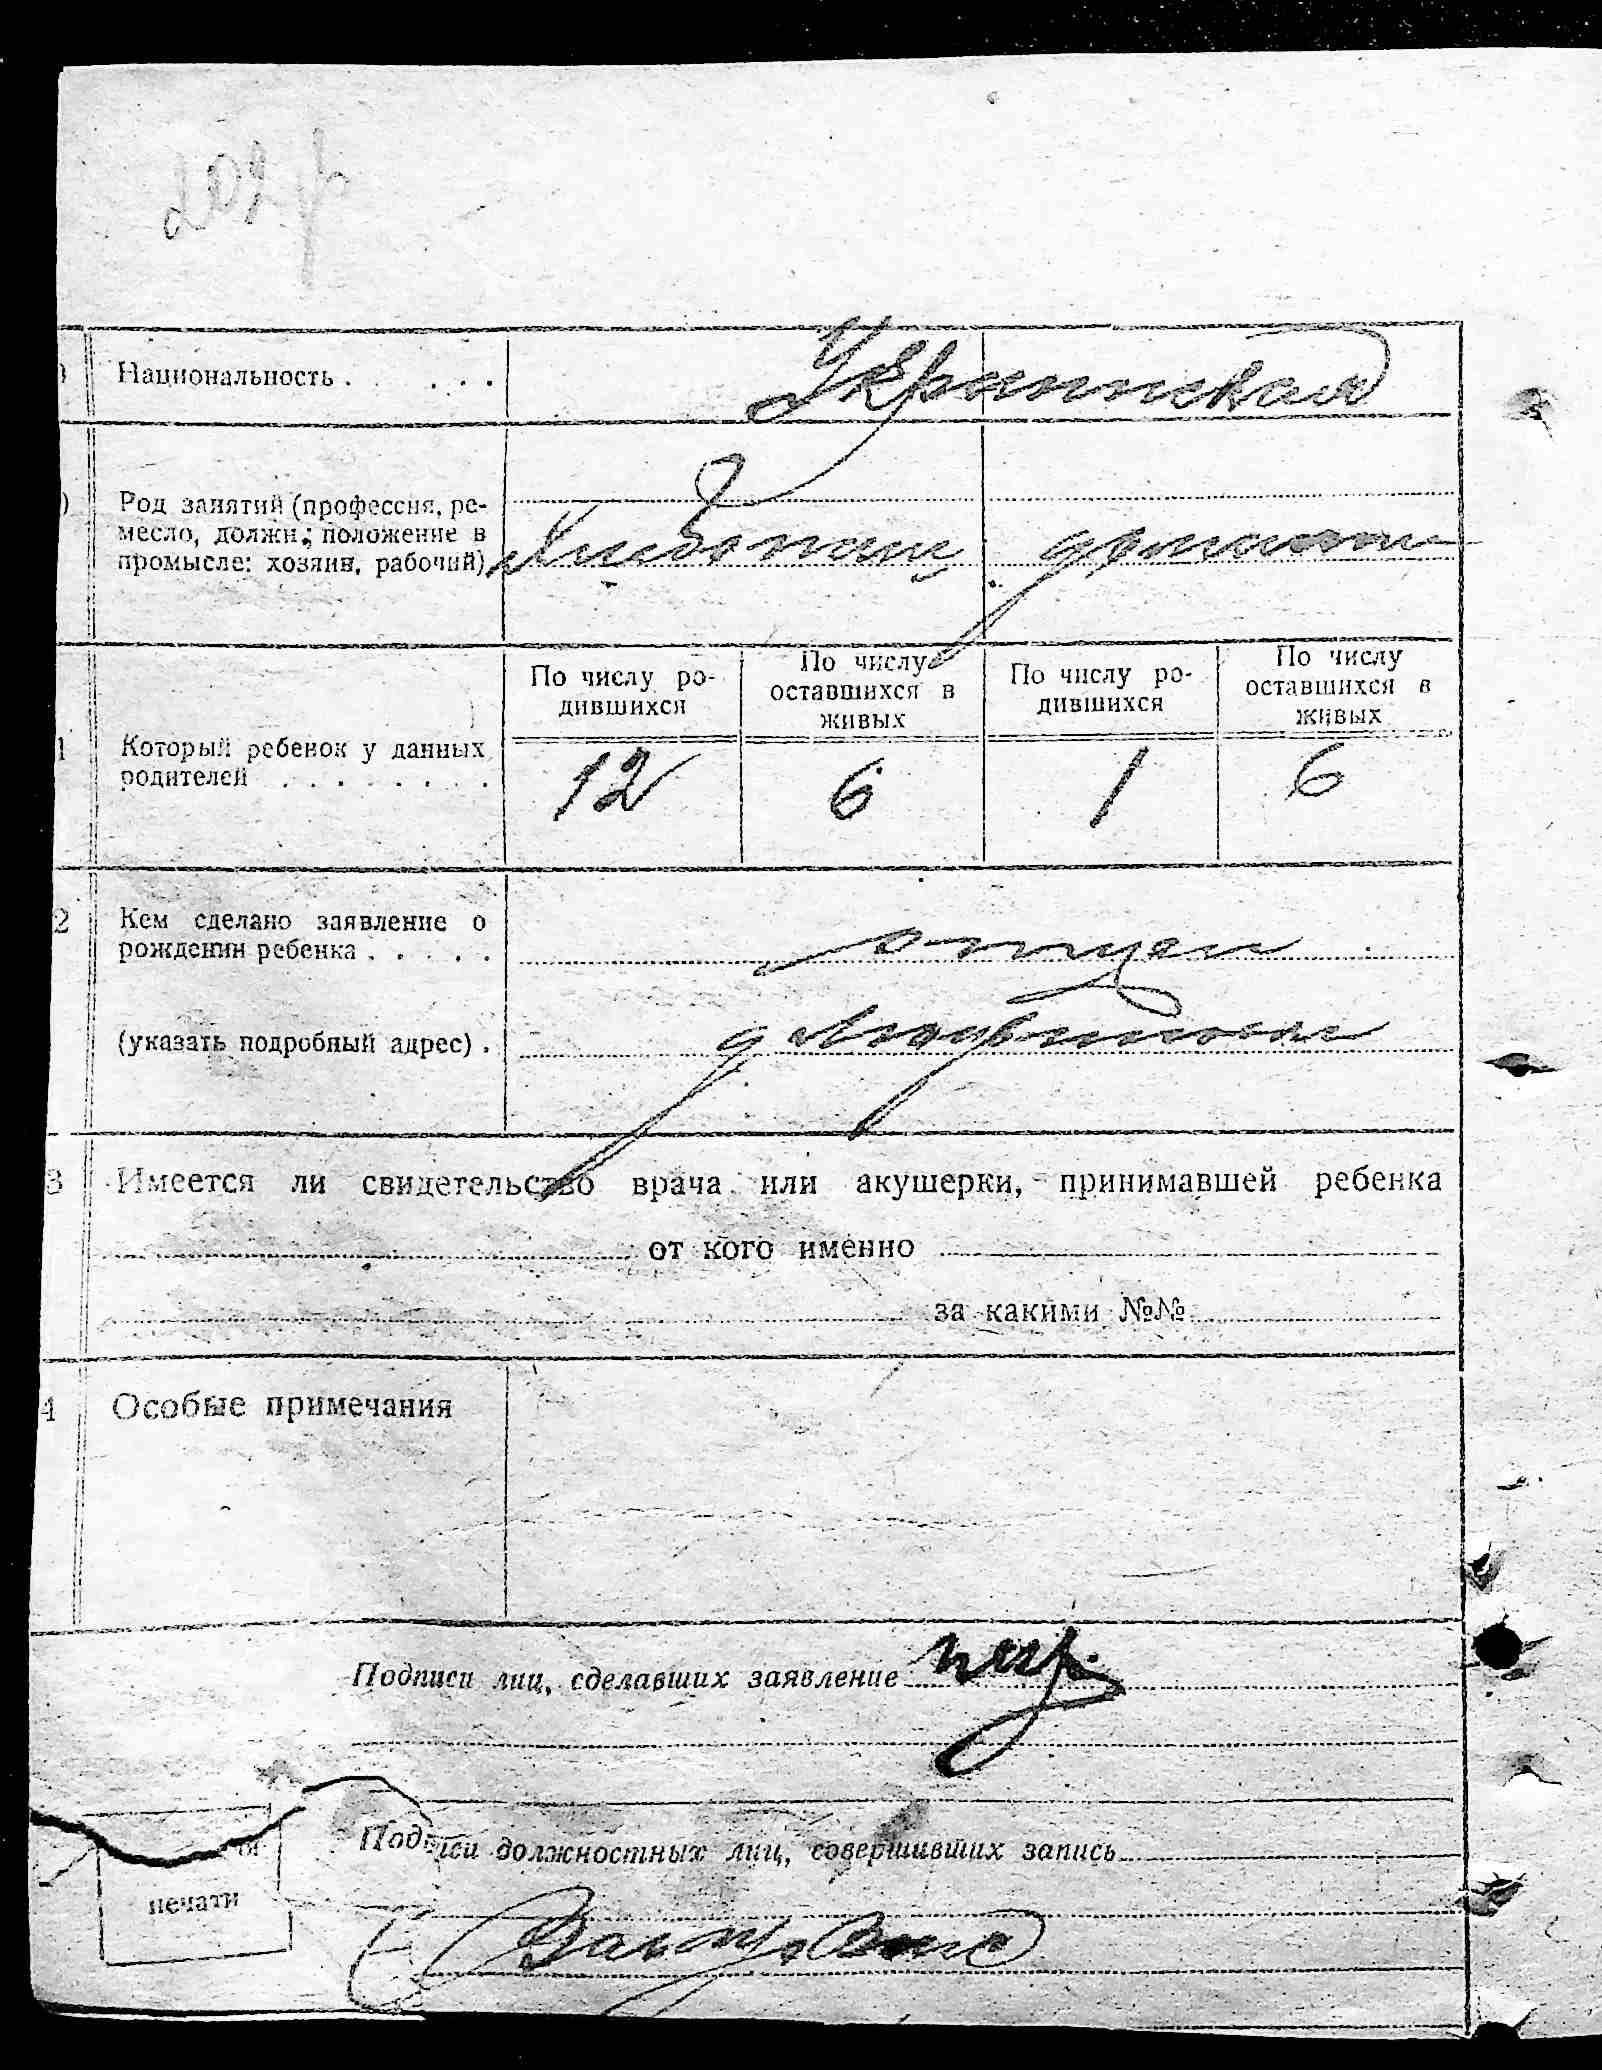 Национальность . . . . .
Украинская
Род занятий (профессия, ре-
месло, должн.; положение в
промысле: хозяин, рабочий)
Хлебопашец
По числу ро-
дившихся
По числу
оставшихся в
живых
По числу ро-
дившихся
По числу
оставшихся в
живых
1 Который ребенок у данных
родителей . . . . . . . .
12 6 1 6
2 Кем сделано заявление о
рождении ребенка . . . . .
отцем
(указать подробный адрес) .
3 Имеется ли свидетельство врача или акушерки, принимавшей ребенка
от кого именно
за какими №№
4 Особые примечания
Подписи лиц, сделавших заявление
Подписи должностных лиц, совершивших запись
печати